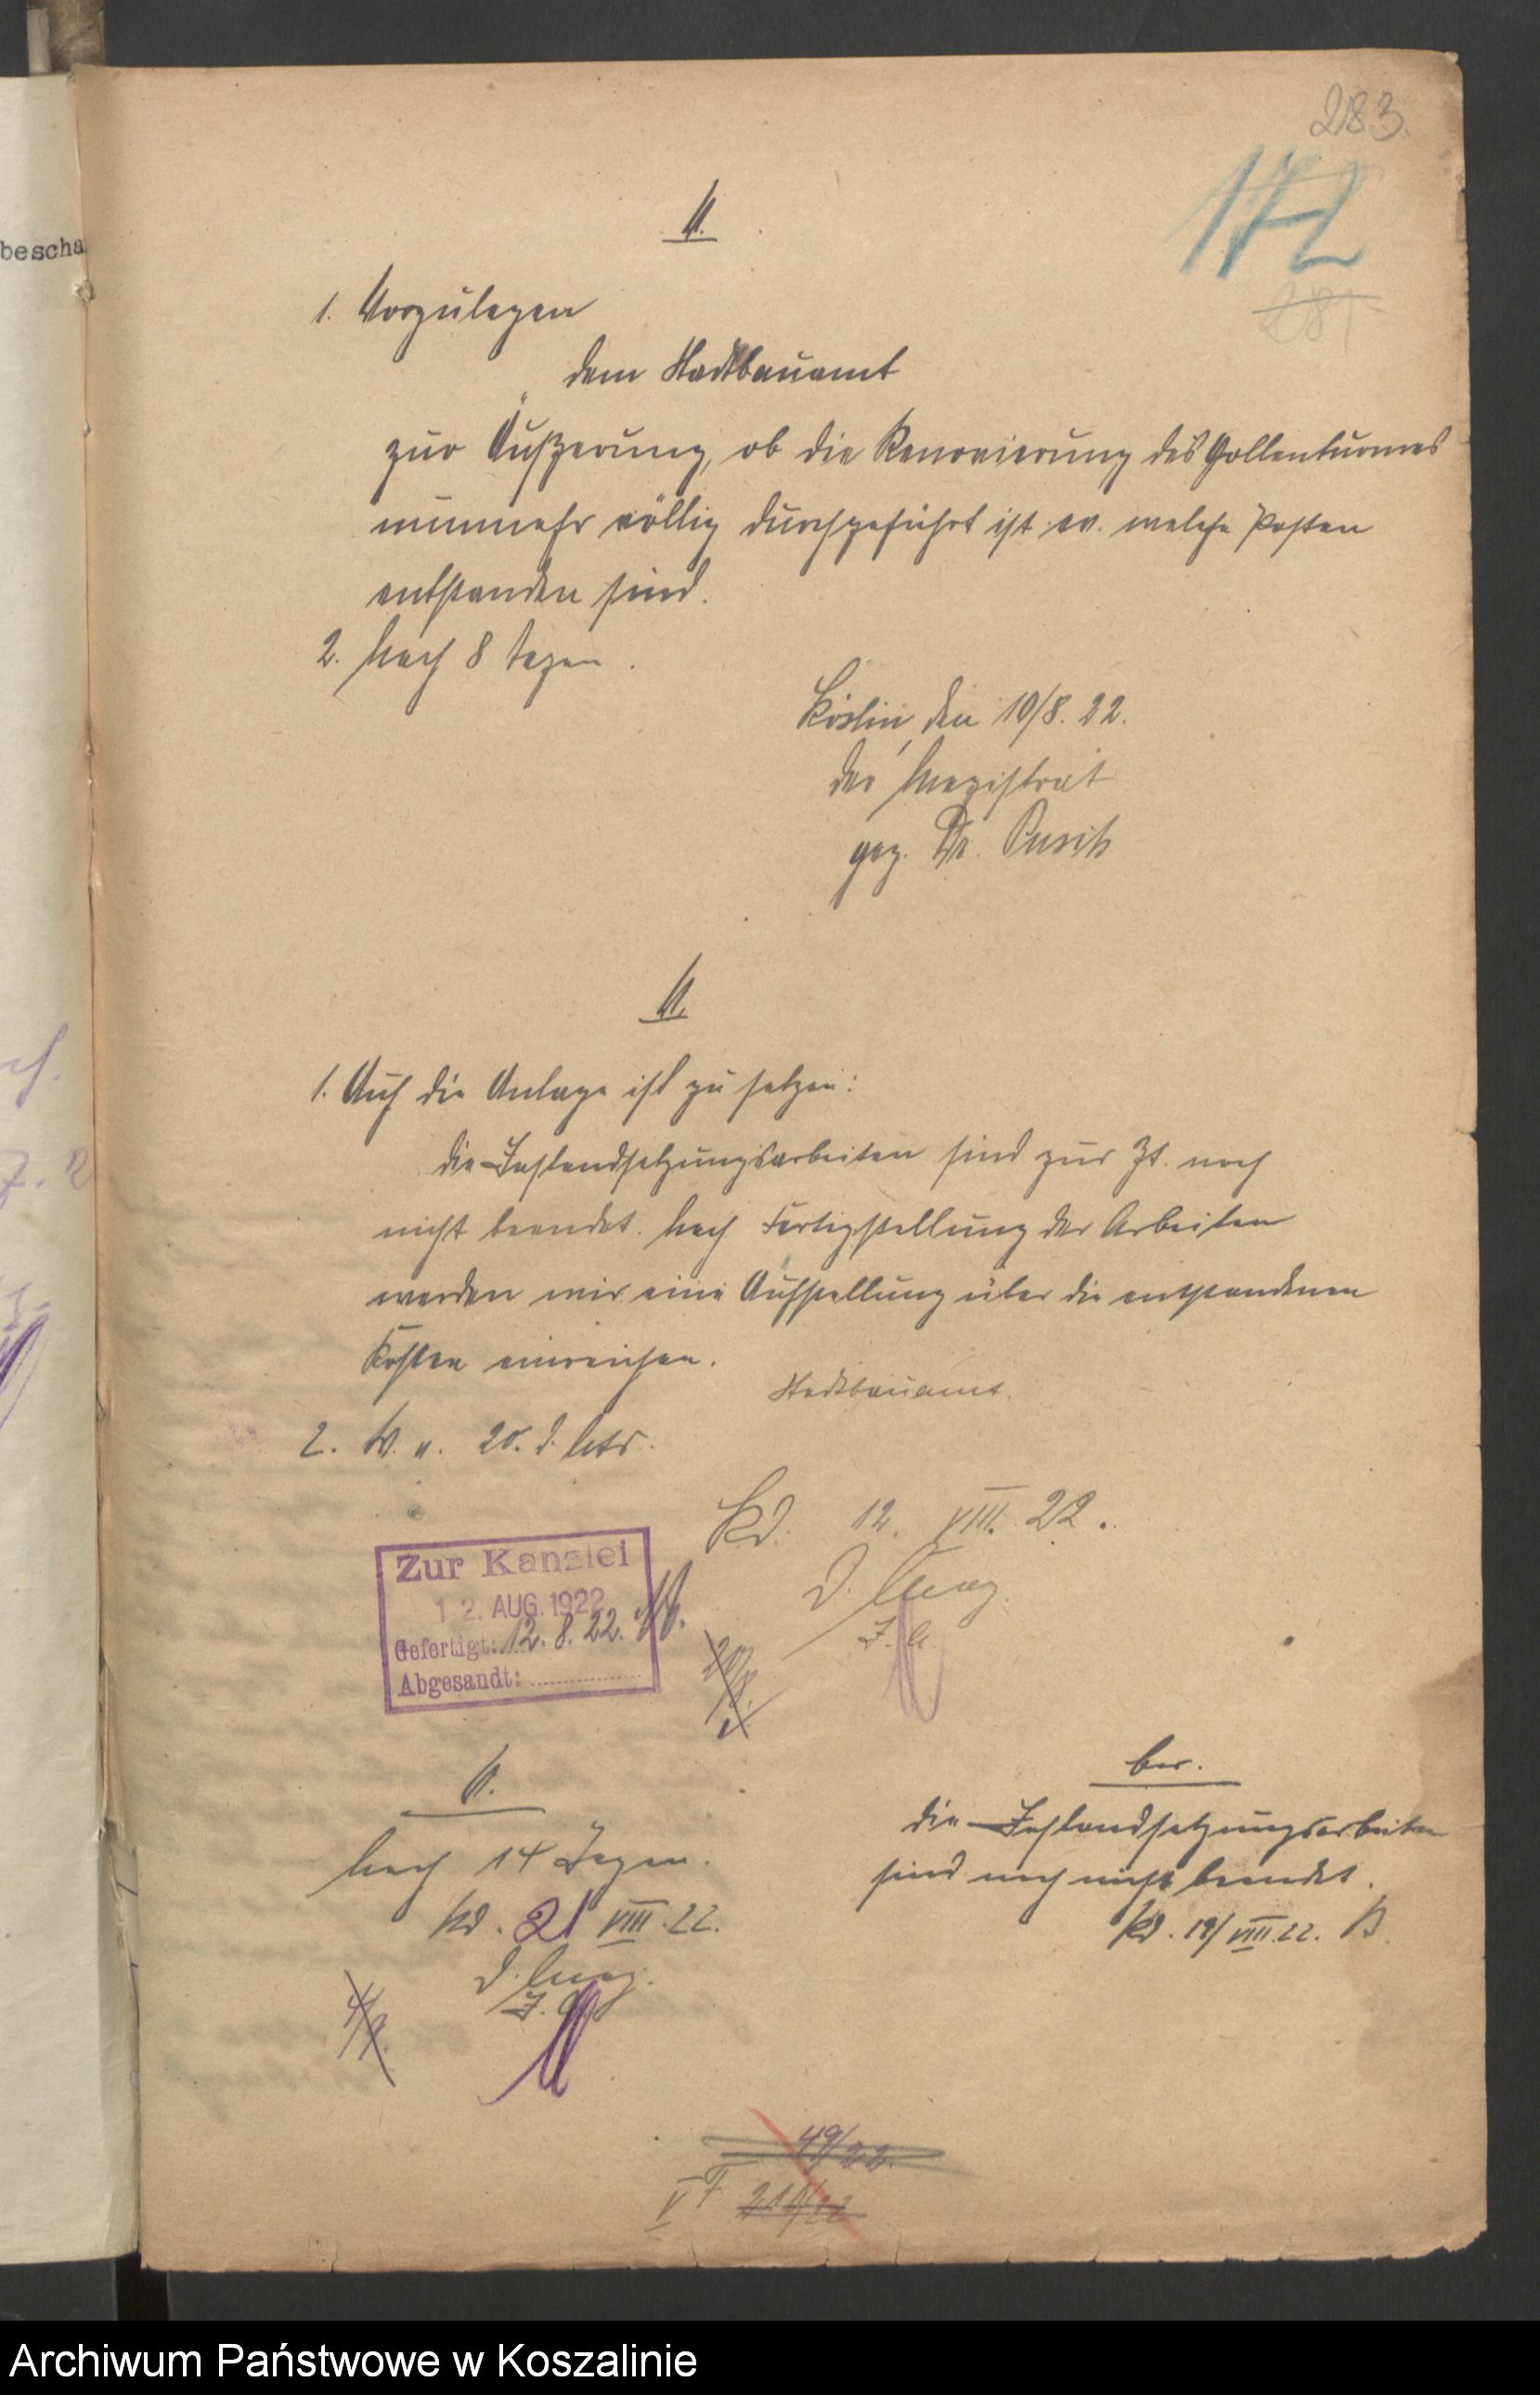 283.
172
281
V.
1. Vorzulegen
dem Stadtbauamt
zur Äußerung, ob die Renovierung des Gollenturmes
nunmehr völlig durchgeführt ist ev. welche Kosten
entstanden sind.
2. Nach 8 Tagen.
Köslin, den 10/8. 22.
Der Magistrat
gez. Dr.
V.
1. Auf die Anlage ist zu setzen:
Die Instandsetzungsarbeiten sind zur Zt. noch
nicht beendet. Nach Fertigstellung der Arbeiten
werden wir eine Aufstellung über die entstandenen
Kosten einreichen.
Stadtbauamt.
2. W. v. 20. d. Mts.
Kö. 12. VIII. 22.
D. Mag.
J. A.
Zur Kanzlei
12. AUG. 1922
Gefertigt: 12. 8. 22.
Abgesandt:
V.
Nach 14 Tagen.
Kö. 21 VIII. 22.
D. Mag.
J. A.
Ber.
Die Instandsetzungsarbeiten
sind noch nicht beendet.
Kö. 19/VIII. 22.
49/22.
V
bescha
Archiwum Państwowe w Koszalinie